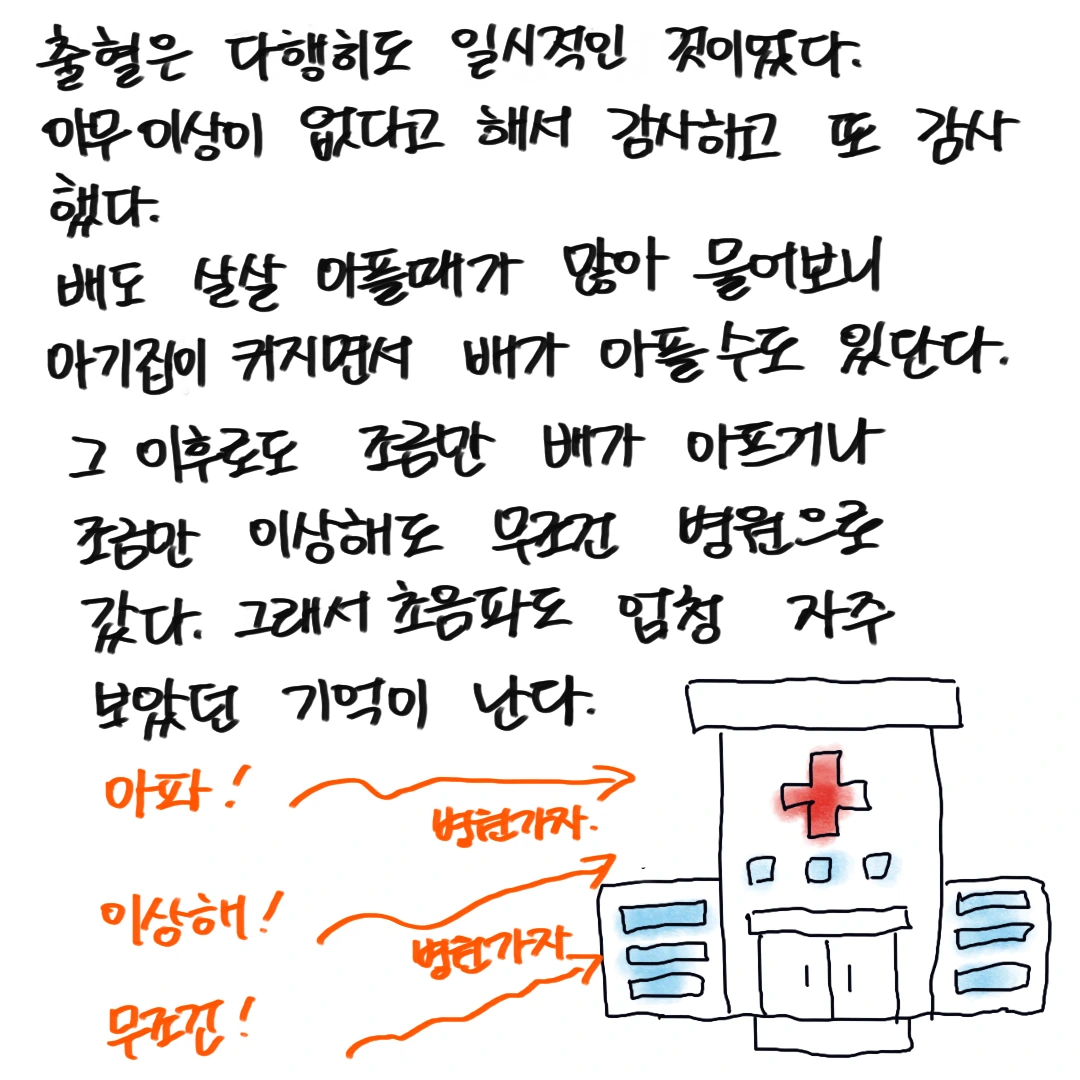 출혈은 다행히도 일시적인 것이였다.
아무이상이 없다고 해서 감사하고 또 감사
했다.
배도 살살 아플때가 많아 물어보니
아기집이 커지면서 배가 아플수도 있단다.
그 이후로도 조금만 배가 아프거나
조금만 이상해도 무조건 병원으로
갔다. 그래서 초음파도 엄청 자주
보았던 기억이 난다.
아파!
병원가자.
이상해!
병원가자
무조건!